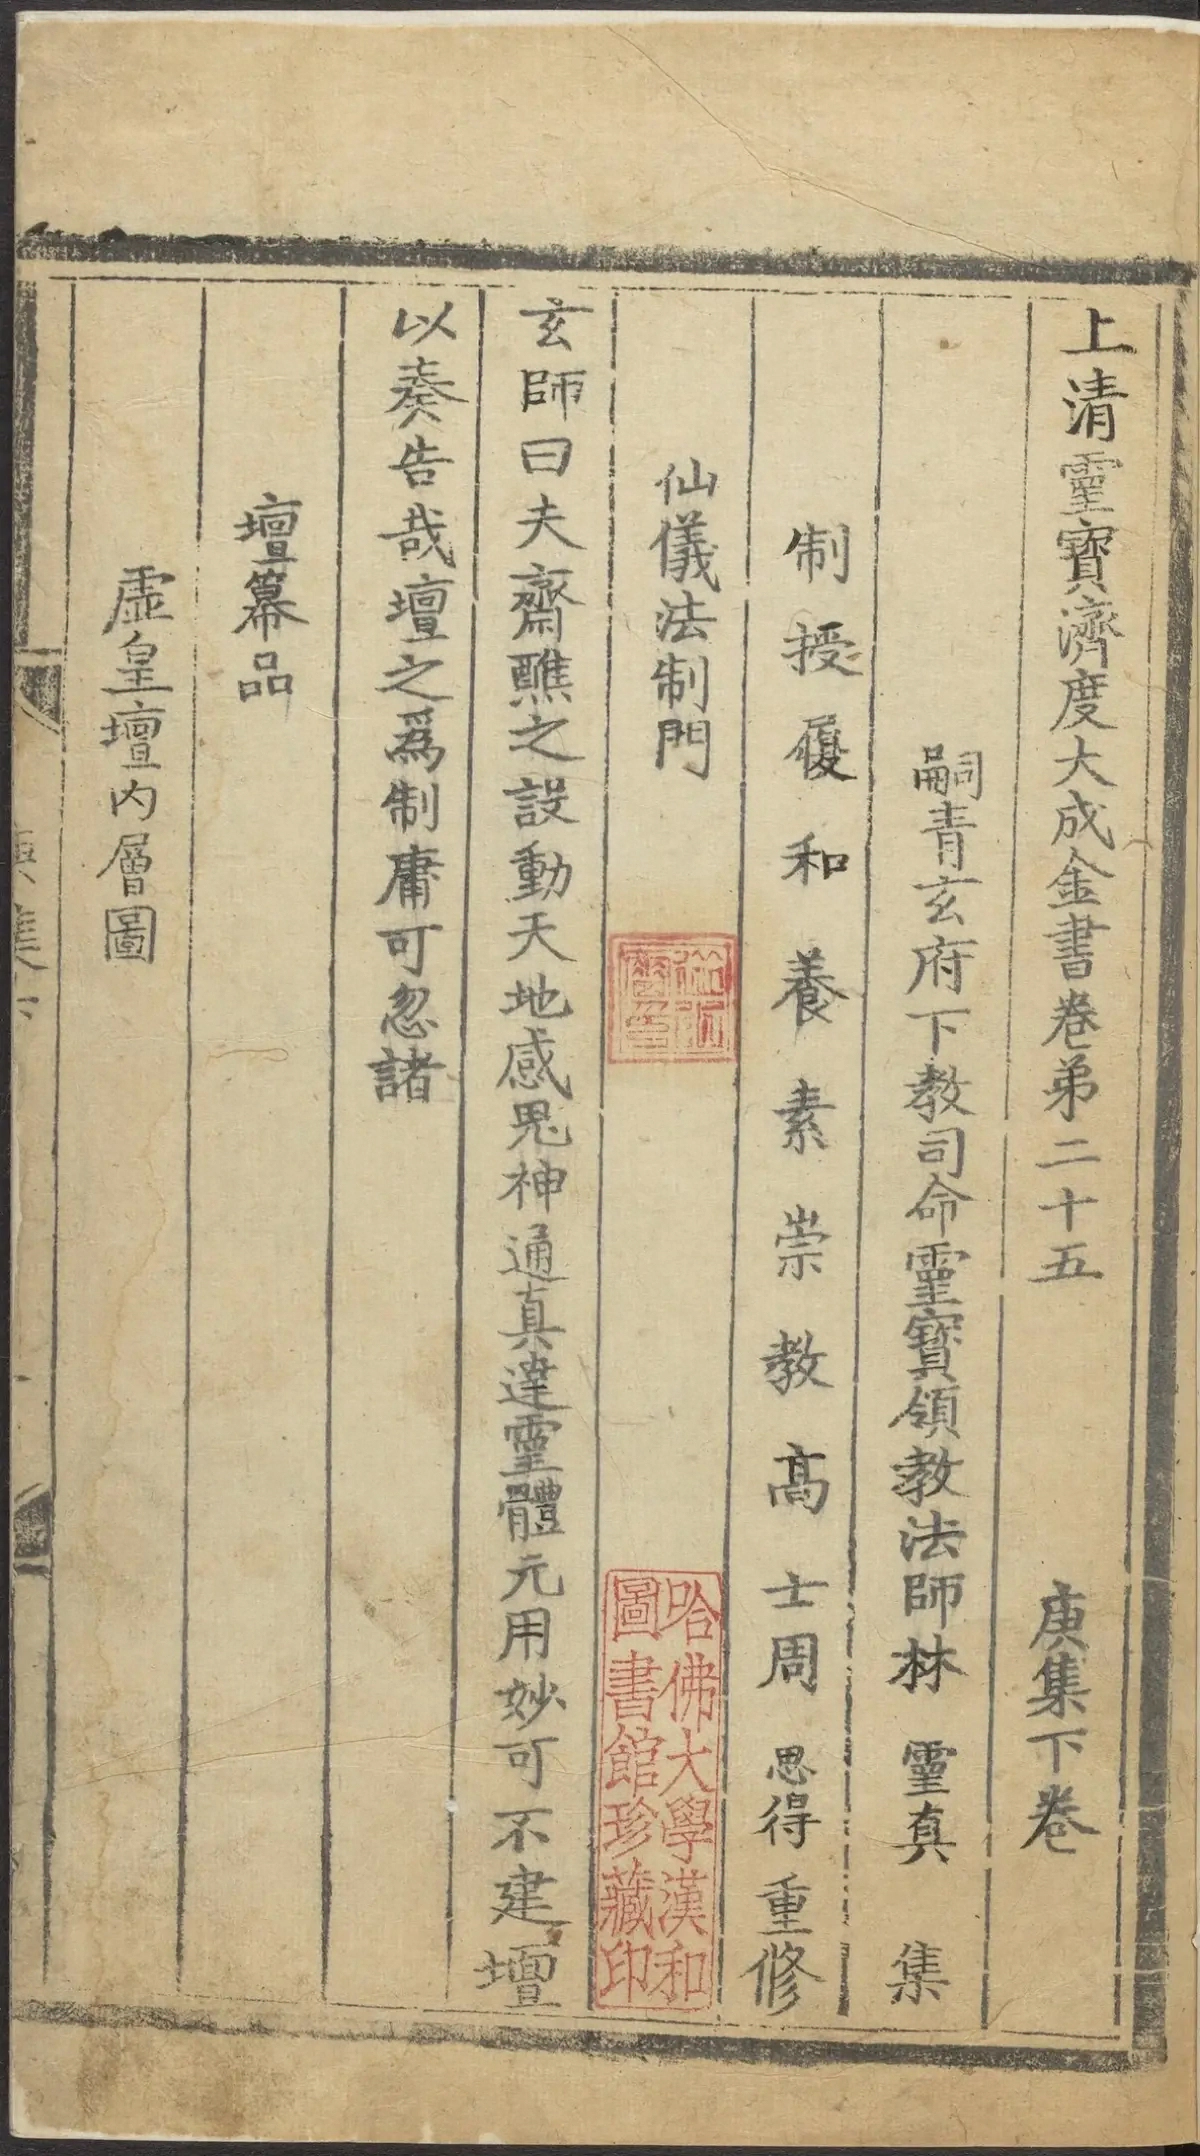 上清靈寶濟度大成金書卷弟二十五 庚集下卷
嗣青玄府下教司命靈寶領教法師林靈真 集
制授履和養素崇教高士周思得重修
仙儀法制門
玄師曰夫齋醮之設動天地感鬼神通真達靈體元用妙可不建壇
以奏告哉壇之爲制庸可忽諸
壇幕品
虛皇壇內層圖
哈佛大學漢和
圖書館珍藏印